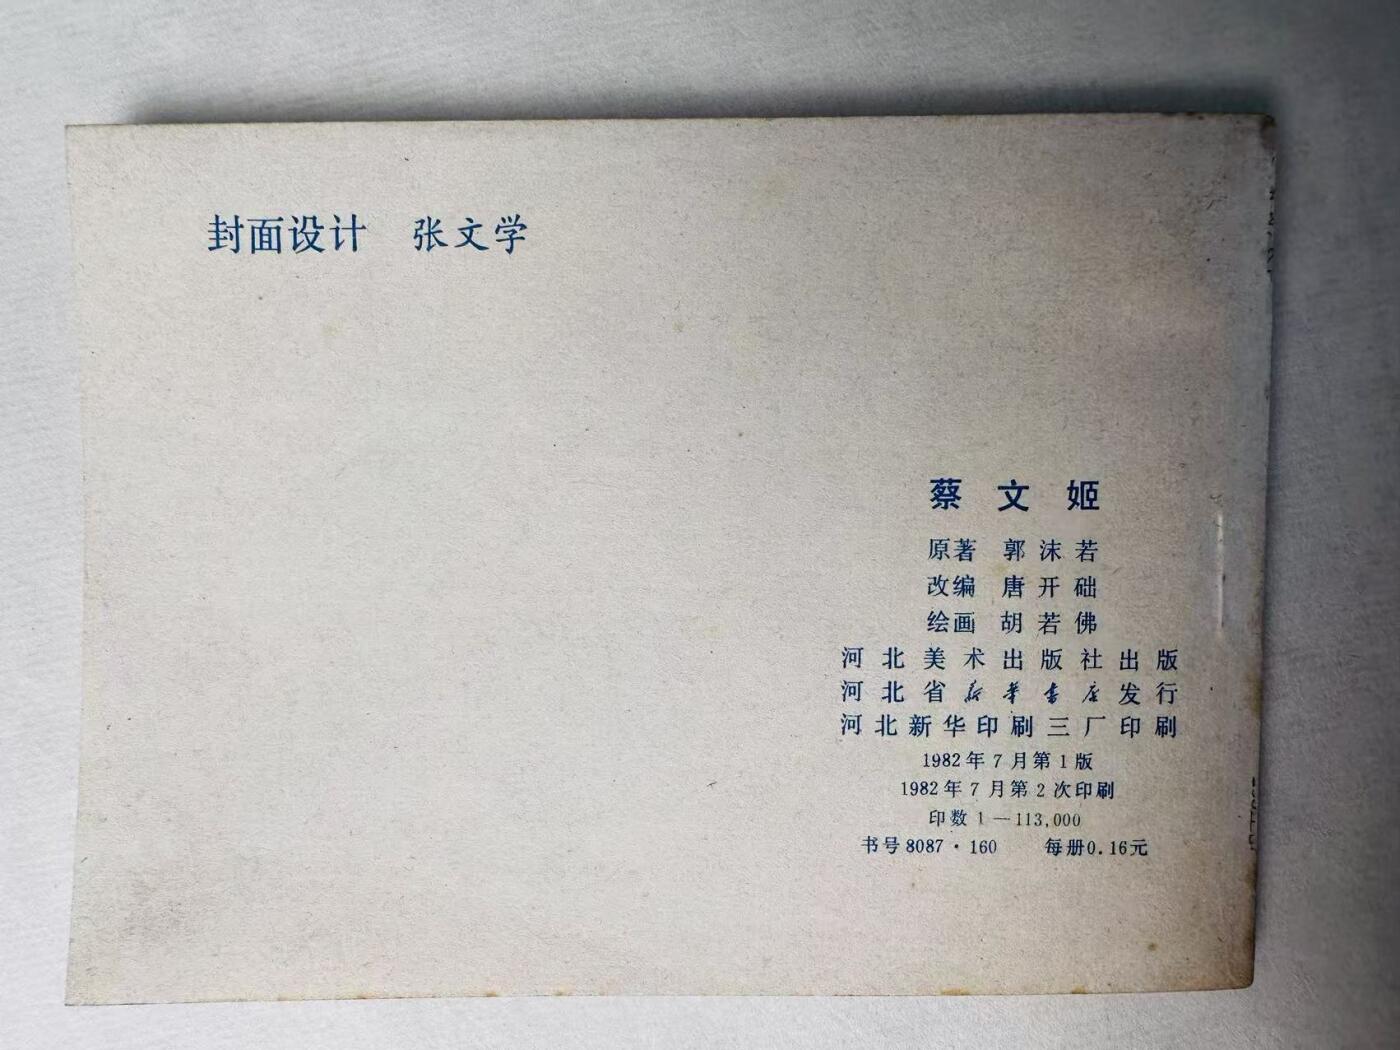 封面设计 张文学
蔡文姬
原著 郭沫若
改编 唐开础
绘画 胡若佛
河北美术出版社出版
河北省新华书店发行
河北新华印刷三厂印刷
1982年7月第1版
1982年7月第2次印刷
印数1—113,000
书号8087·160 每册0.16元